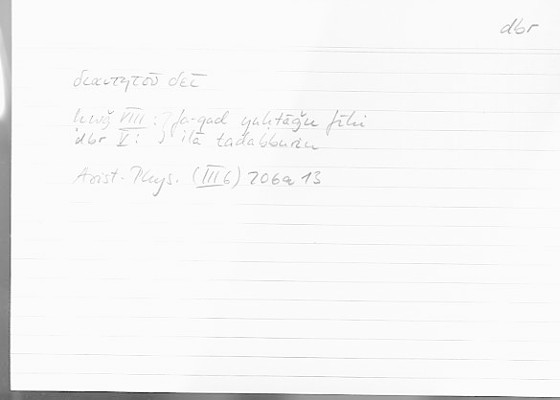 dbr
διαιτητοῦ δεῖ
ḥwǧ VIII : fa-qad yuḥtāǧu fīhi
dbr V : ilā tadabburin
Arist. Phys. (III 6) 206a 13